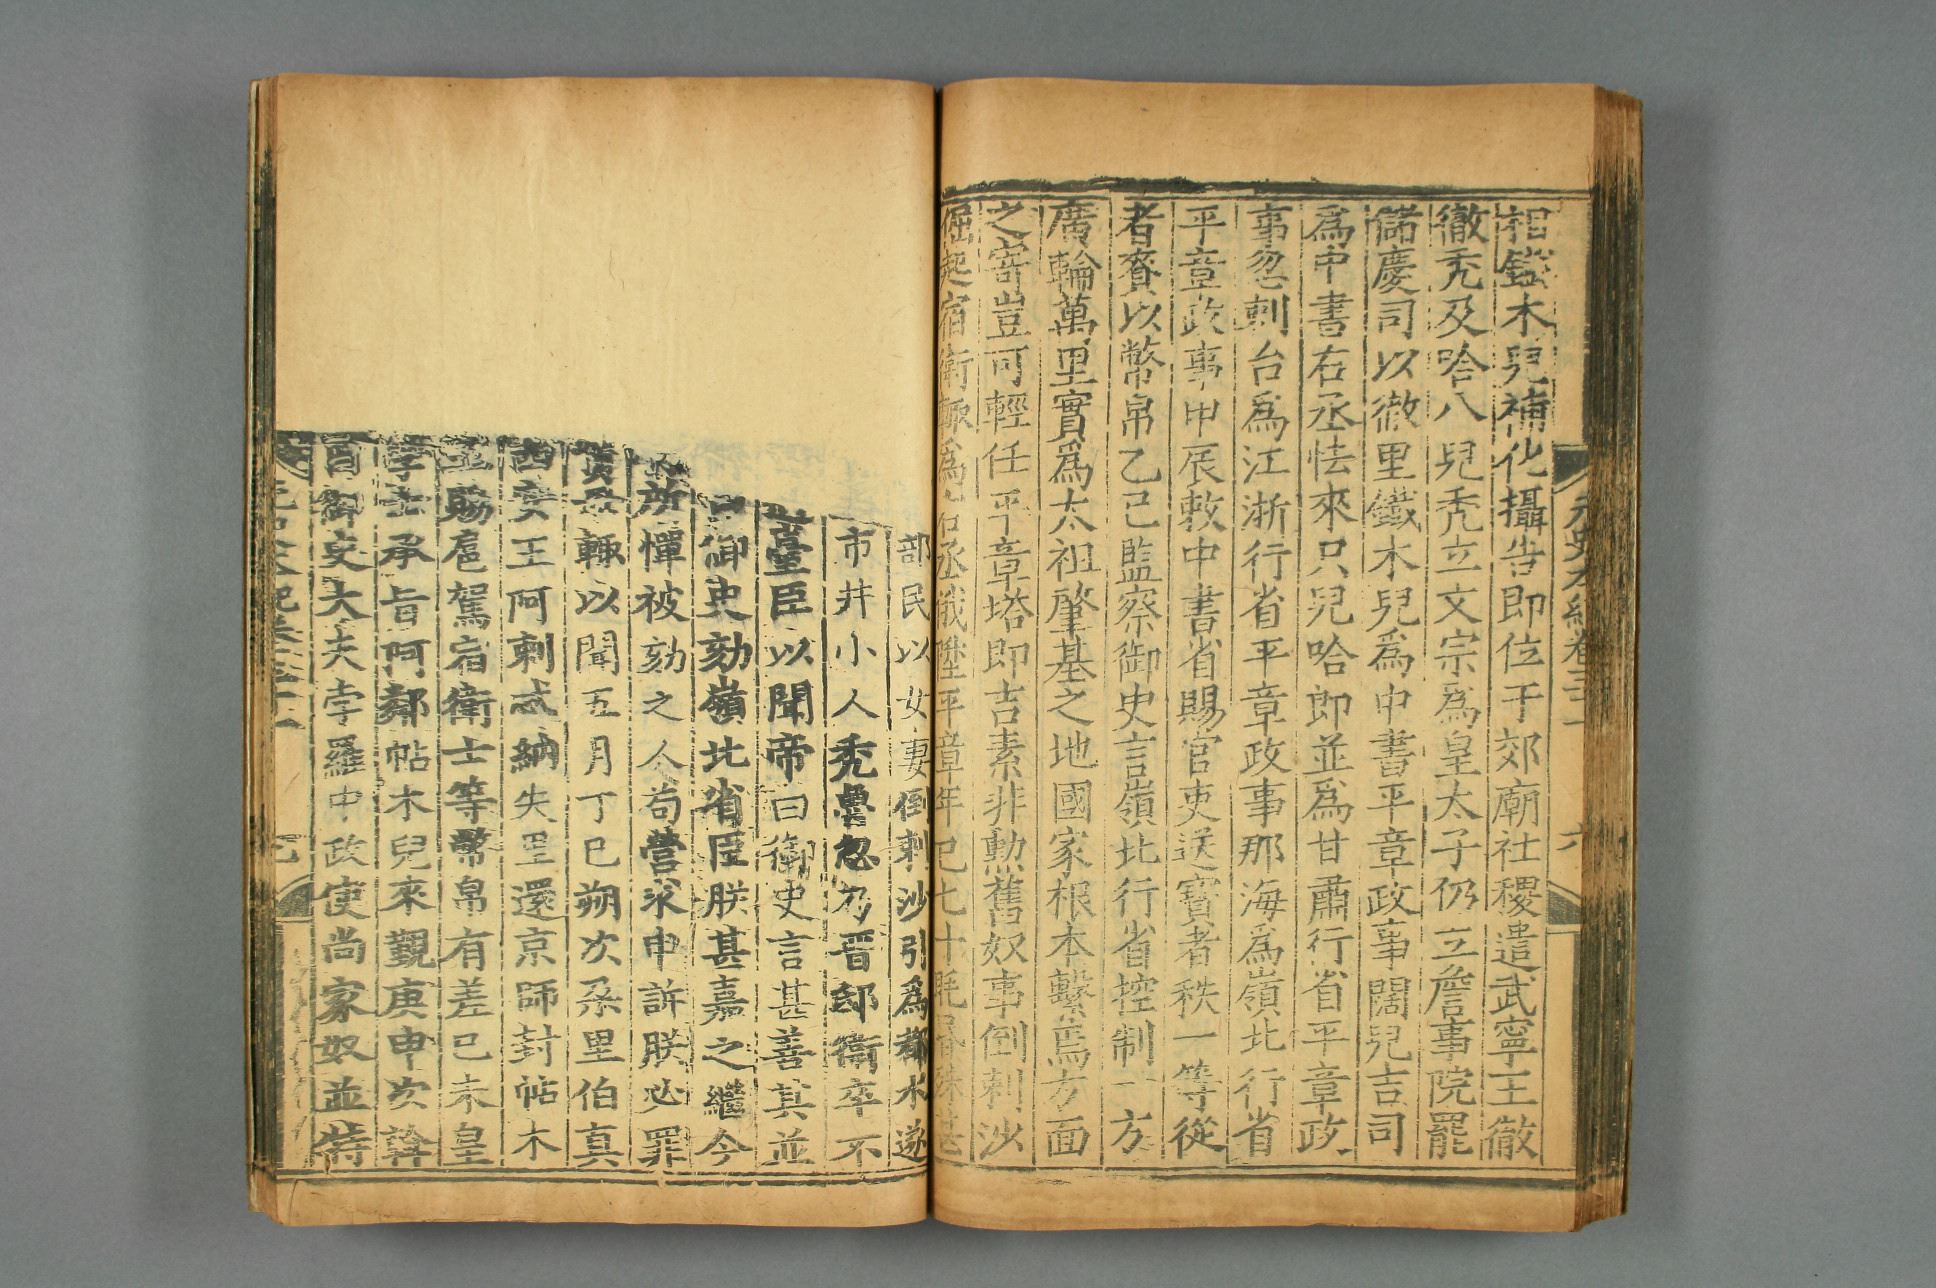 相鐵木兒補化攝告即位于郊廟社稷遣武寧王徹
徹禿及哈八兒禿立文宗爲皇太子仍立詹事院罷
儲慶司以徹里鐵木兒爲中書平章政事闊兒吉司
爲中書右丞怯來只兒哈即並爲甘肅行省平章政
事忽剌台爲江浙行省平章政事那海爲嶺北行省
平章政事甲辰敕中書省賜官吏送寶者秩一等從
者賚以幣帛乙巳監察御史言嶺北行省控制一方
廣輪萬里實爲太祖肇基之地國家根本繫焉方面
之寄豈可輕任平章塔即吉素非勳舊奴事倒剌沙
倔起宿衛輒爲右丞俄陞平章年已七十眊昏殊甚
元史本紀卷三十一
六
部民以女妻倒剌沙引爲都水遂
市井小人禿魯忽乃晋邸衛卒不
臺臣以聞帝曰御史言甚善其並
御史劾嶺北省臣朕甚嘉之繼今
所憚被劾之人苟營求申訴朕必罪
貴
輒以聞五月丁巳朔次朶里伯真
西安王阿剌忒納失里還京師封帖木
王賜扈駕宿衛士等幣帛有差己未皇
學士承旨阿鄰帖木兒來覲庚申次斡
首御史大夫孛羅中政使尚家奴並特
元史本紀卷三十一
七